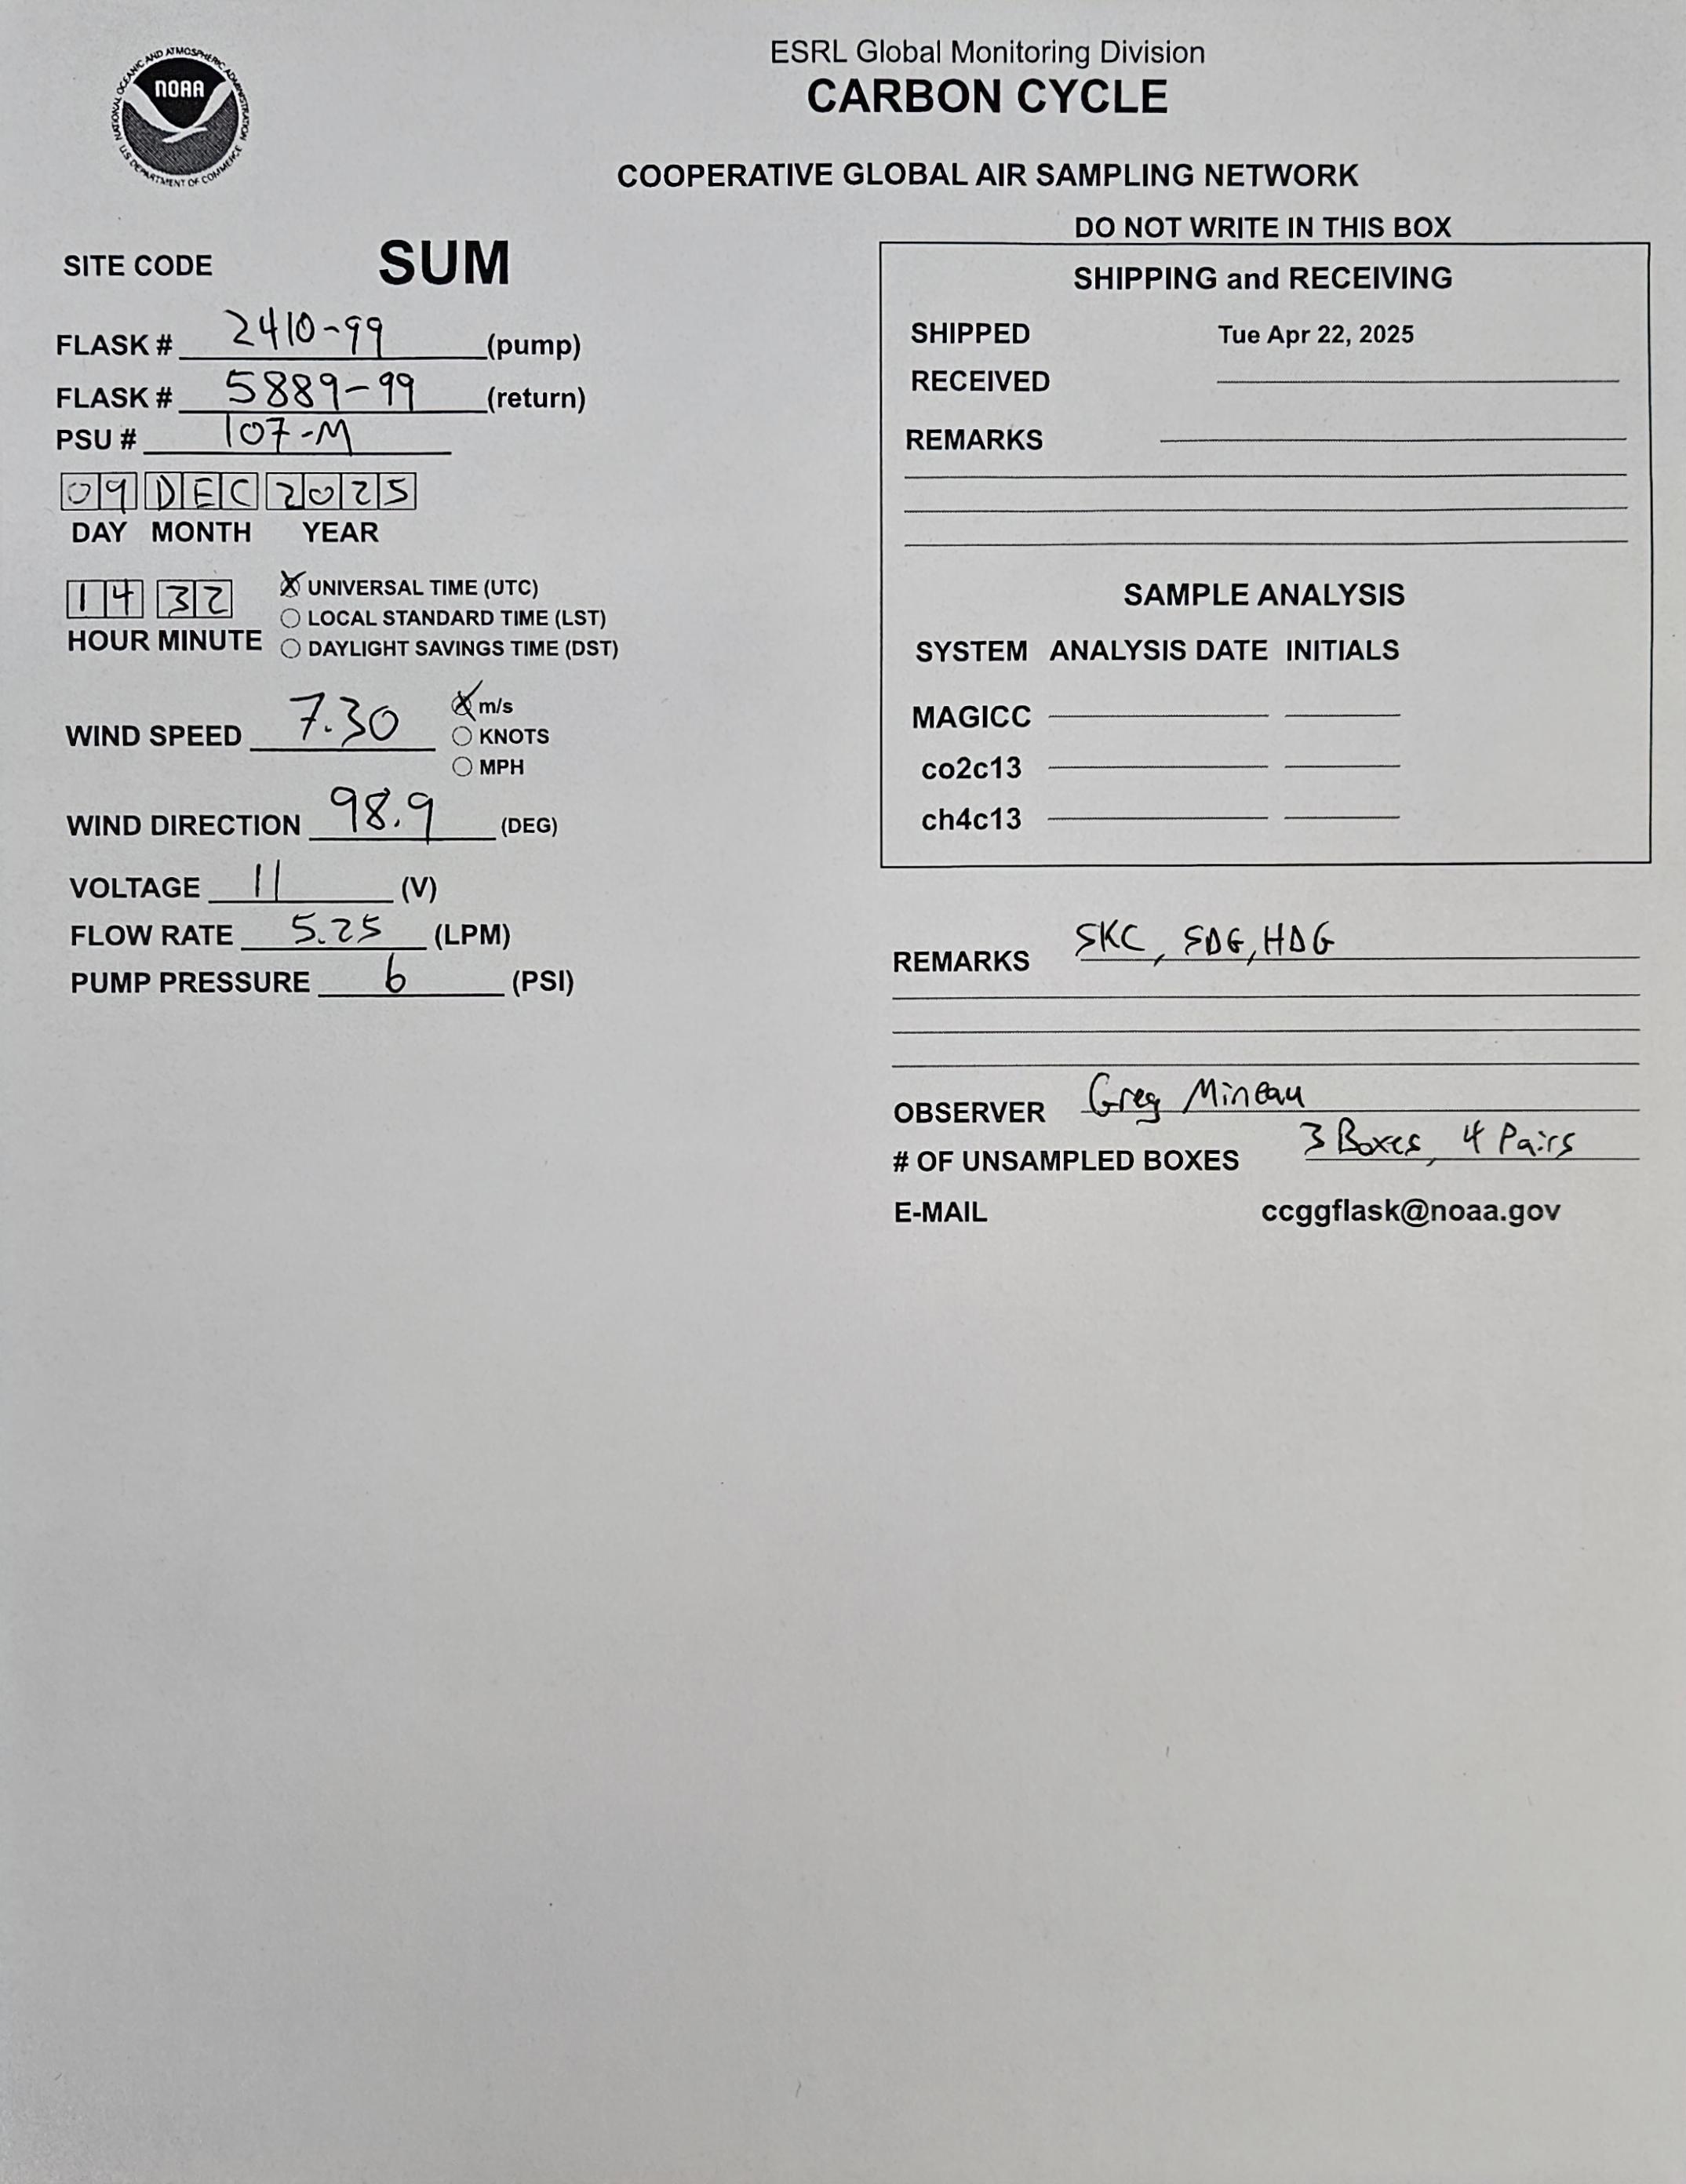 NATIONAL OCEANIC AND ATMOSPHERIC ADMINISTRATION
U.S. DEPARTMENT OF COMMERCE
NOAA
ESRL Global Monitoring Division
CARBON CYCLE
COOPERATIVE GLOBAL AIR SAMPLING NETWORK
SITE CODE SUM
FLASK # 2410-99 (pump)
FLASK # 5889-99 (return)
PSU # 107-M
09 DEC 2025
DAY MONTH YEAR
14 32
HOUR MINUTE
X UNIVERSAL TIME (UTC)
LOCAL STANDARD TIME (LST)
DAYLIGHT SAVINGS TIME (DST)
WIND SPEED 7.30
X m/s
KNOTS
MPH
WIND DIRECTION 98.9 (DEG)
VOLTAGE 11 (V)
FLOW RATE 5.25 (LPM)
PUMP PRESSURE 6 (PSI)
DO NOT WRITE IN THIS BOX
SHIPPING and RECEIVING
SHIPPED Tue Apr 22, 2025
RECEIVED
REMARKS
SAMPLE ANALYSIS
SYSTEM ANALYSIS DATE INITIALS
MAGICC
co2c13
ch4c13
REMARKS SKC, SDG, HDG
OBSERVER Greg Mineau
# OF UNSAMPLED BOXES 3 Boxes, 4 Pairs
E-MAIL ccggflask@noaa.gov